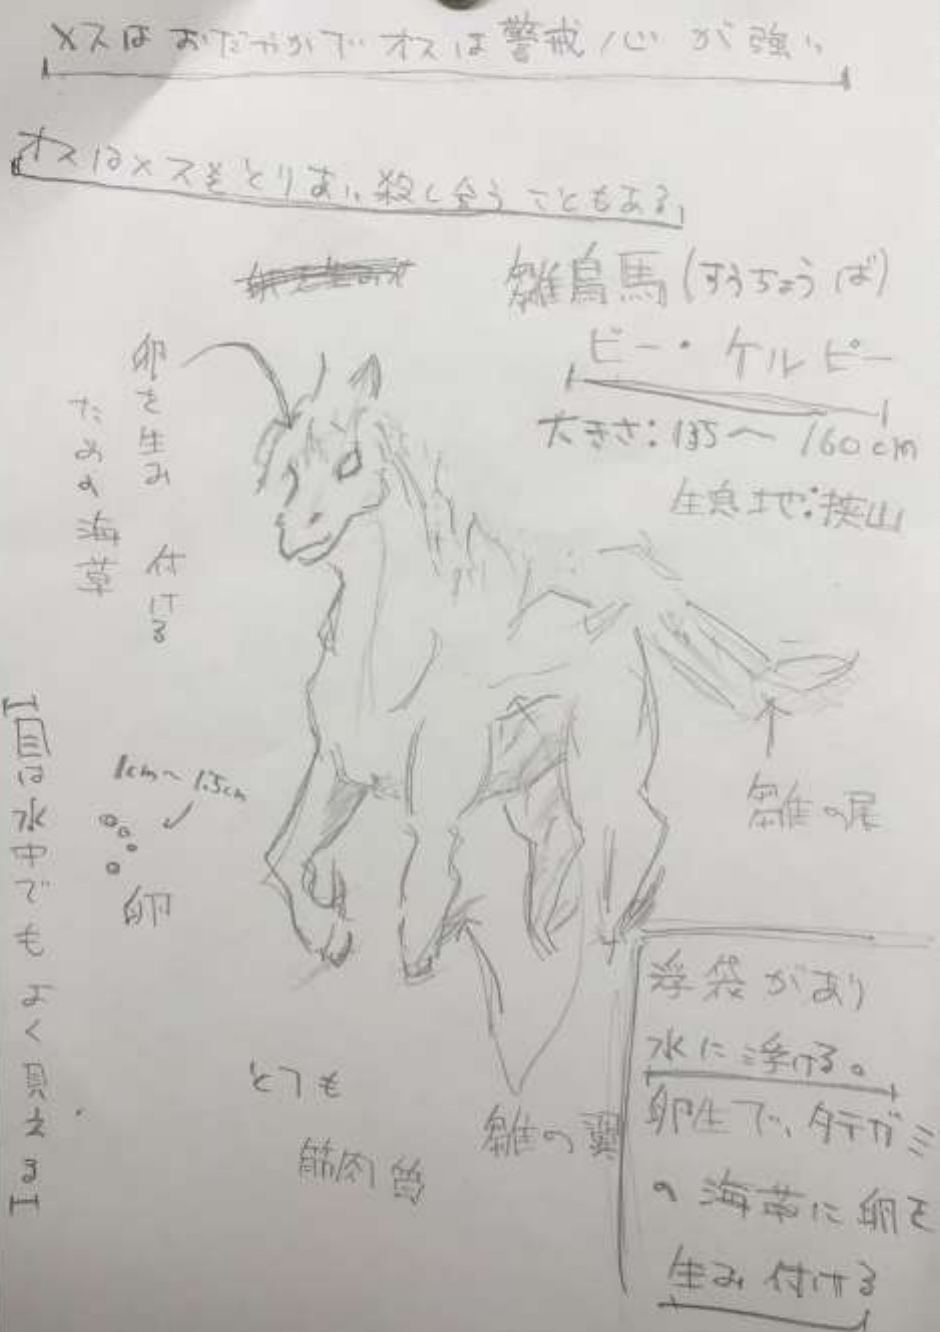 メスはおだやかでオスは警戒心が強い
オスはメスをとりあい殺し合うこともある
雛鳥馬(すうちょうば)
ビー・ケルピー
大きさ:135〜160cm
生息地:挟山
卵を生み付ける
ための海草
1cm〜1.5cm
卵
【目は水中でもよく見える】
雛の尾
雛の翼
とても
筋肉
浮袋があり
水に浮ける。
卵生で、タテガミ
の海草に卵を
生み付ける